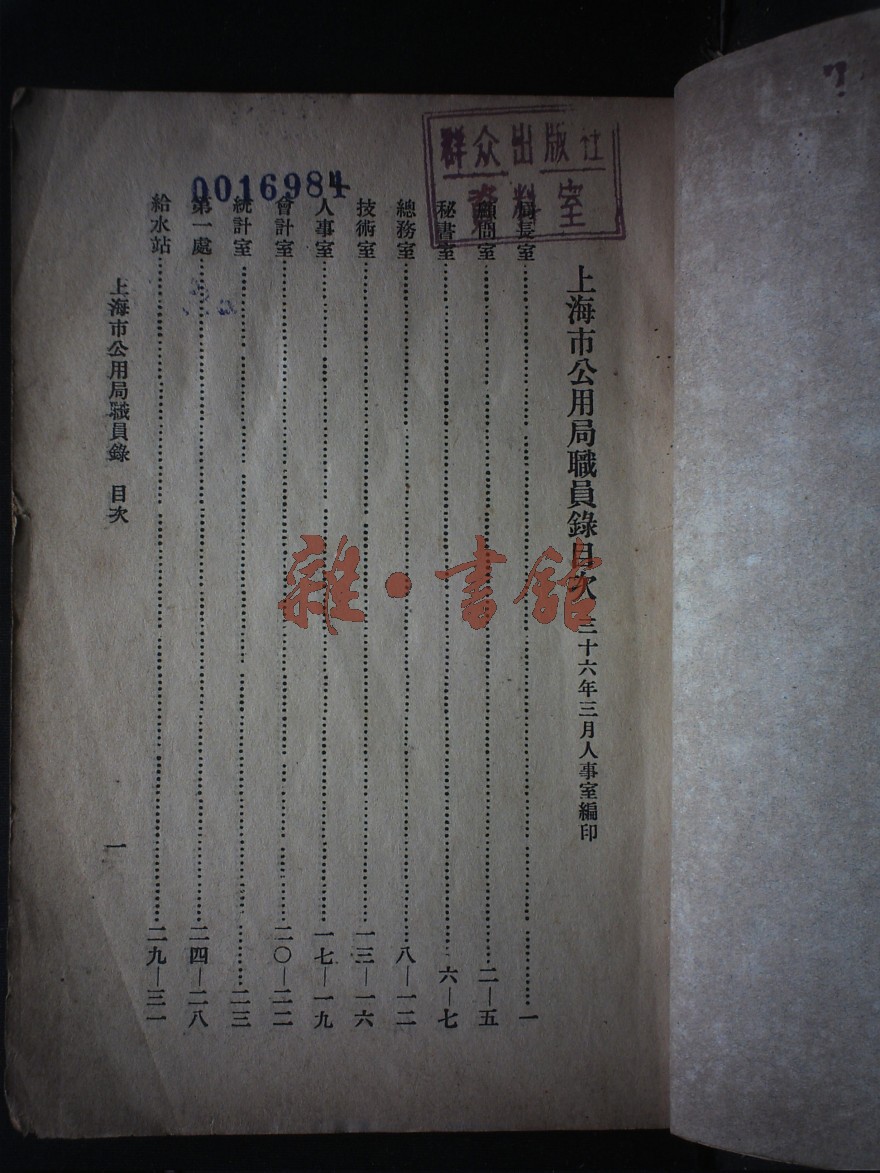 群众出版社
資料室
0016984
上海市公用局職員錄目次 三十六年三月人事室編印
局長室 一
顧問室 二—五
秘書室 六—七
總務室 八—一二
技術室 一三—一六
人事室 一七—一九
會計室 二〇—二二
統計室 二三
第一處 二四—二八
給水站 二九—三一
上海市公用局職員錄 目次 一
雜·書館